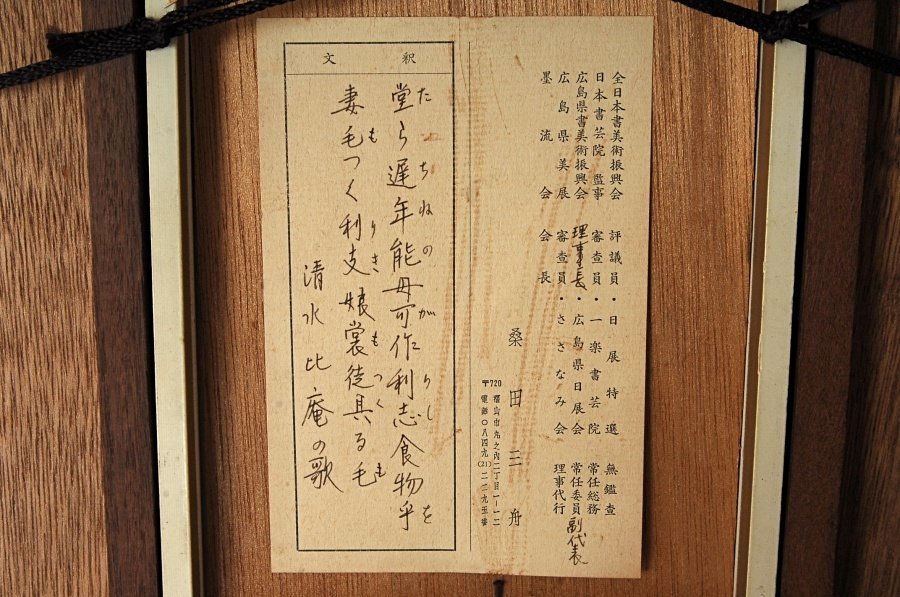 全日本書美術振興会 評議員・日展特選 無鑑査
日本書芸院監事 審査員・一楽書芸院 常任総務
広島県書美術振興会 理事長・広島県日展会 常任委員 副代表
広島県美展 審査員・ささなみ会 理事代行
墨流会 会長
桑田三舟
〒720 福山市丸之内二丁目一ー一二
電話〇八四九(21)二二九五番
釈文
たちねのがりしを
堂ら遅年能母可作利志食物乎
もりきもつくも
妻毛つく利支娘裳徒具る毛
清水比庵の歌